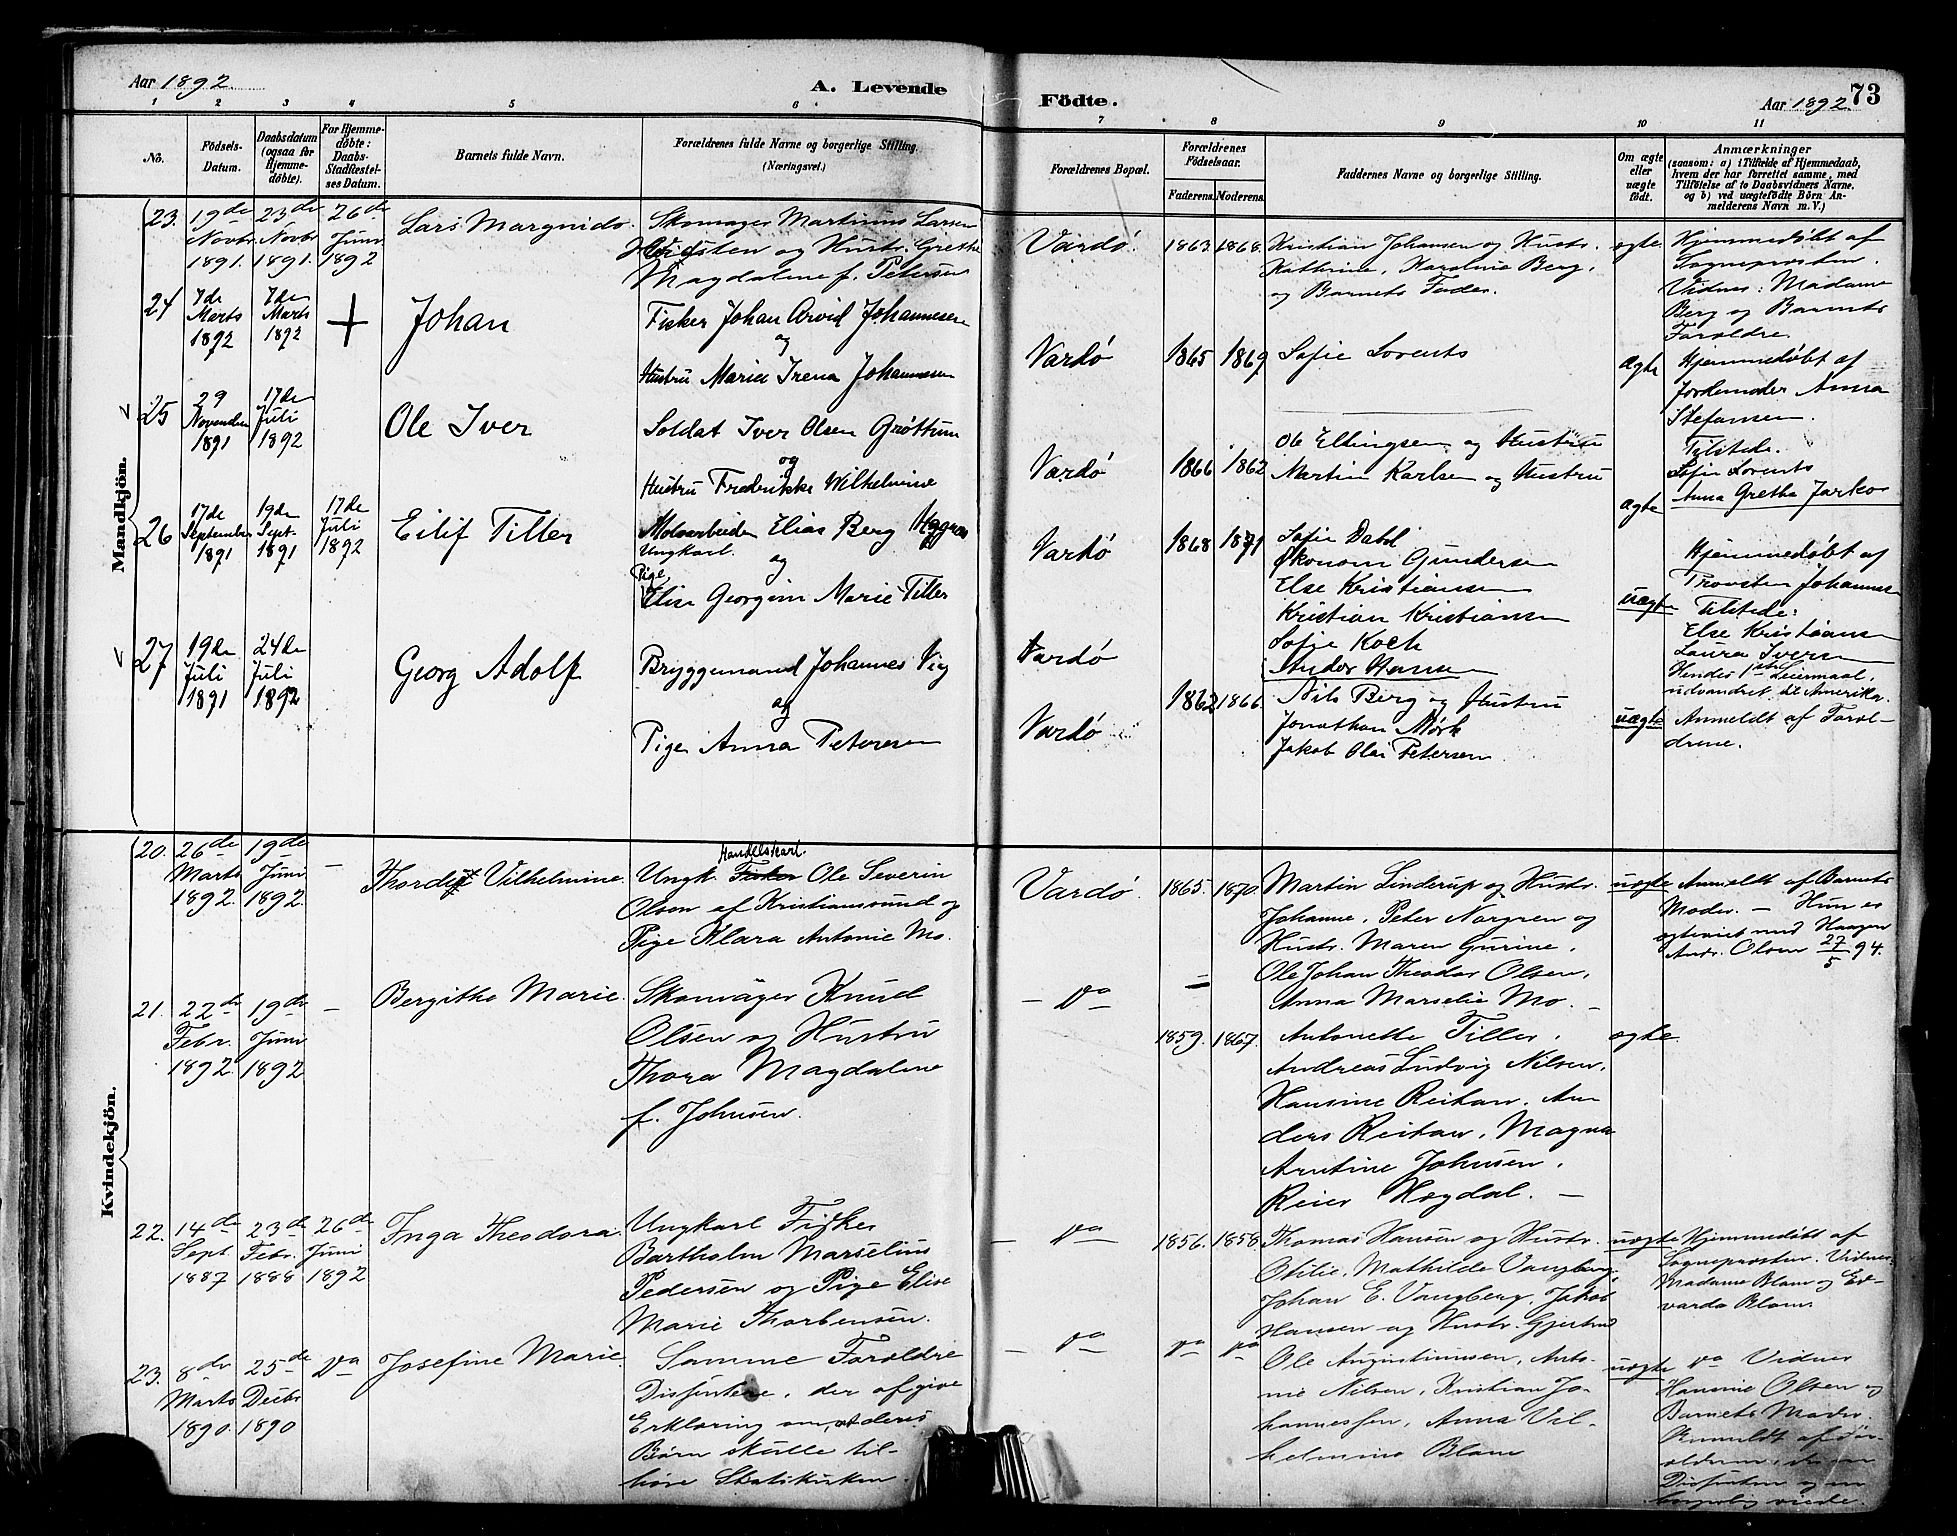 Aar 1892.
A. Levende
Födte.
Aar 1892. 73
1 2 3 4 5 6 7 8 9 10 11
No.
Födsels-
Datum.
Daabsdatum
(ogsaa for
Hjemme-
döbte).
For Hjemme-
döbte:
Daabs-
Stadfæstel-
ses Datum.
Barnets fulde Navn.
Forældrenes fulde Navne og borgerlige Stilling.
(Næringsvei.)
Forældrenes Bopæl.
Forældrenes
Födselsaar.
Faderens. Moderens.
Faddernes Navne og borgerlige Stilling.
Om ægte
eller
uægte
födt.
Anmærkninger
(saasom: a) i Tilfælde af Hjemmedaab,
hvem der har forrettet samme, med
Tilföielse af to Daabsvidners Navne,
og b) ved uægtefödte Börn An-
melderens Navn m. V.)
Mandkjön.
23.
19de
Novbr
1891.
23de
Novbr
1891.
26de
Juni
1892
Lars Margnido.
Skomager Martinus Larsen
og Hustr. Grethe
Magdalene f. Petersen
Vardø.
1863. 1868.
Kristian Johansen og Hustr.
Kathrine, Karoline Berg,
og Barnets Fader.
ægte
Hjemmedøbt af
Sogneprosten.
Vidner: Madame
Berg og Barnets
Forældre.
24
7de
Marts
1892
7de
Marts
1892
+
Johan
Fisker Johan Arvid Johannesen
og
Hustru Marie Irena Johannesen
Vardø
1865 1869
Sofie Lorents
ægte
Hjemmedøbt af
Jordemoder Anna
Stefansen.
Tilstede.
Sofie Lorents
Anna Gretha Jarko
25
29
November
1891
17de
Juli
1892
Ole Iver
Soldat Iver Olsen Grøttum
og
Hustru Fredrikke Wilhelmine
Vardø
1866 1862
Ole Ellingsen og Hustru
Martin Karlsen og Hustru
ægte
26
17de
September
1891
19de
Sept.
1891
17de
Juli
1892
Eilif Tiller
Elias Berg
Ungkarl.
og
Pige
Elise Georgine Marie Tiller
Vardø
1868 1871
Sofie Dahl
Økonom Gundersen
Else Kristiansen
Kristian Kristiansen
Sofie Koch
Ander Hansen
uægte
Hjemmedøbt af
Johannesen
Tilstede:
Else Kristiansen
Laura Iversen
Hendes 1ste Leiermaal,
udvandret til Amerika.
27
19de
Juli
1891
24de
Juli
1892
Georg Adolf
Bryggemand Johannes Vig
og
Pige Anna Petersen
Vardø
Vardø
1862 1866
Nils Berg og Hustru
Jonathan Mørk
Jakob Olai Petersen
uægte
Anmeldt af Foræl-
drene.
Kvindekjön.
20.
26de
Marts
1892.
19de
Juni
1892.
–
Thordis Vilhelmine.
Handelskarl.
Ungk. Fisker Ole Severin
Olsen af Kristianssund og
Pige Klara Antonie Mo.
Vardø.
1865. 1870.
Martin Linderup og Hustr.
Johanne, Peter Norgren og
Hustr. Maren Gurine,
Ole Johan Theodor Olsen,
Anna Marselie Mo. –
uægte
Anmeldt af Barnets
Moder. – Hun er
med Haagen
Andr. Olsen 27/5 94.
21.
22de
Febr.
1892.
19de
Juni
1892
–
Bergithe Marie.
Skomager Knud
Olsen og Hustru
Thora Magdalene
f. Johnsen.
– Do –
1859. 1867.
Antonette Tiller,
Andreas Ludvig Nilsen,
Hansine Reitan, An-
ders Reitan, Magna
Arntine Johnsen,
Reier Hegdal. –
ægte
22.
14de
Sept.
1887
23de
Febr.
1888
26de
Juni
1892
Inga Theodora.
Ungkarl Fisker
Bartholm Marselius
Pedersen og Pige Elise
Marie Thorbensen.
– Do –
1856. 1858.
Thomas Hansen og Hustr.
Otilie, Mathilde Vangberg,
Johan E. Vangberg, Jakob
Hansen og Hustr. Gjertrud
uægte
Hjemmedøbt af
Sogneprosten. Vidner:
Madame Blam og Ed-
varda Blam.
23.
8de
Marts
1890.
25de
Decbr
1890
Do
Josefine Marie.
Samme Forældre
Dissentere, der afgive
Erklæring om, at deres
Børn skulle til-
høre Statskirken.
– Do –
Do Do
Ole Augustinussen, Anto-
nie Nilsen, Kristian Jo-
hannessen, Anna Vil-
helmine Blam
uægte
Do Vidner
Hansine Olsen og
Barnets Moder.
Anmeldt af For-
ældrene, der ere
Dissentere og ere
borgerlig viede.